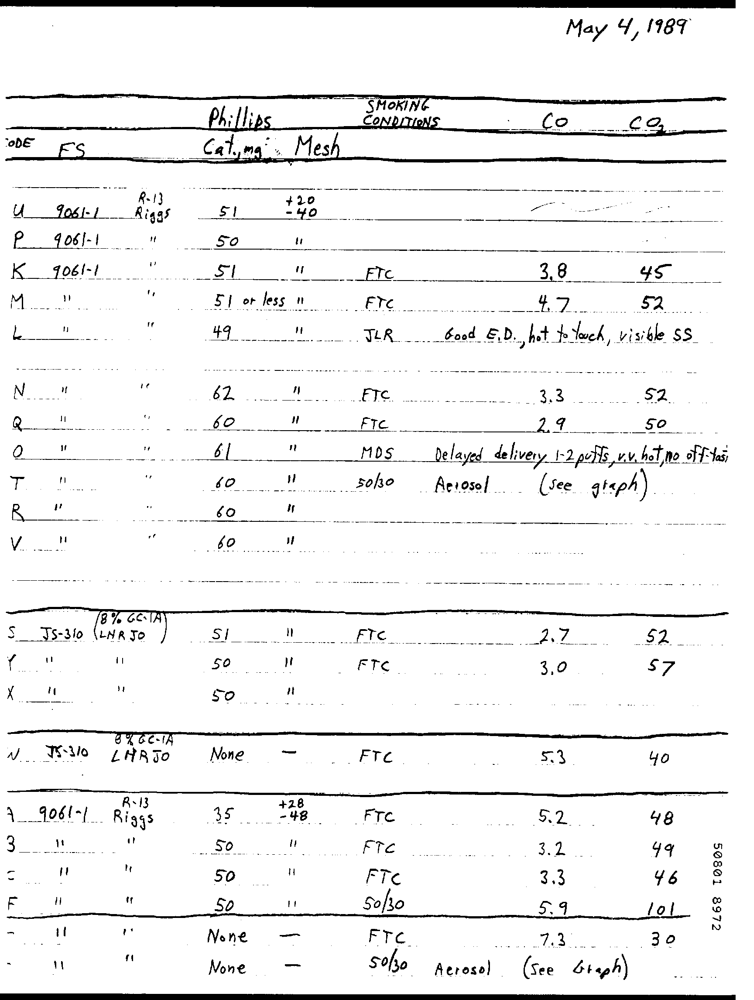 May 4, 1989
Phillips SMOKING CONDITIONS CO CO2
CODE FS Cat., mg. Mesh
U 9061-1 R-13 Riggs 51 +20 -40
P 9061-1 " 50 "
K 9061-1 " 51 " FTC 3.8 45
M " " 51 or less " FTC 4.7 52
L " " 49 " JLR Good E.D., hot to touch, visible SS
N " " 62 " FTC 3.3 52
Q " " 60 " FTC 2.9 50
O " " 61 " MDS Delayed delivery 1-2 puffs, v.v. hot, no off-tas
T " " 60 " 50/30 Aerosol (see graph)
R " " 60 "
V " " 60 "
S JS-310 (8% GC-1A) LNR JO 51 " FTC 2.7 52
Y " " 50 " FTC 3.0 57
X " " 50 "
JS-310 8% GC-1A LNR JO None — FTC 5.3 40
A 9061-1 R-13 Riggs 35 +28 -48 FTC 5.2 48
B " " 50 " FTC 3.2 49
" " 50 " FTC 3.3 46
F " " 50 " 50/30 5.9 101
" " None — FTC 7.3 30
" " None — 50/30 Aerosol (See Graph)
50801 8972